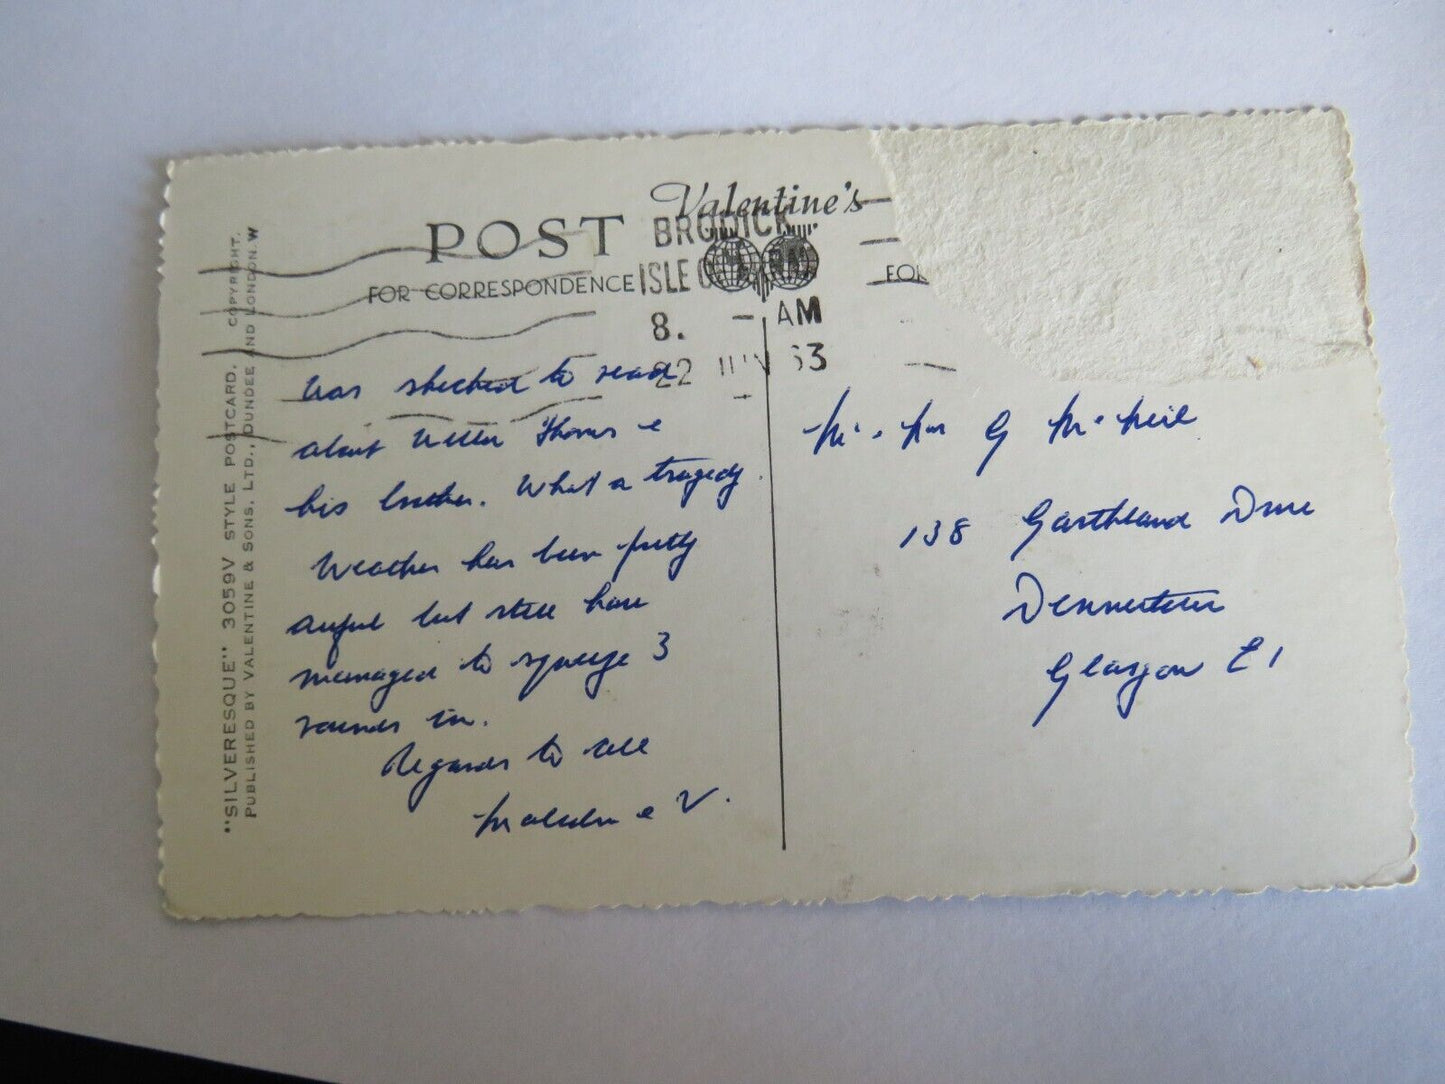 Valentine's
POST
FOR CORRESPONDENCE
FOR
BRODICK
ISLE OF ARRAN
8. — AM
22 JUN 63
Was shocked to read
about Thomas &
his brother. What a tragedy.
Weather has been pretty
awful but still have
managed to squeeze 3
rounds in.
Regards to all
Malcolm & V.
Mr & Mrs G McNeil
138 Garthland Drive
Dennistoun
Glasgow E1
"SILVERESQUE" 3059V STYLE POSTCARD. COPYRIGHT.
PUBLISHED BY VALENTINE & SONS, LTD., DUNDEE AND LONDON. W